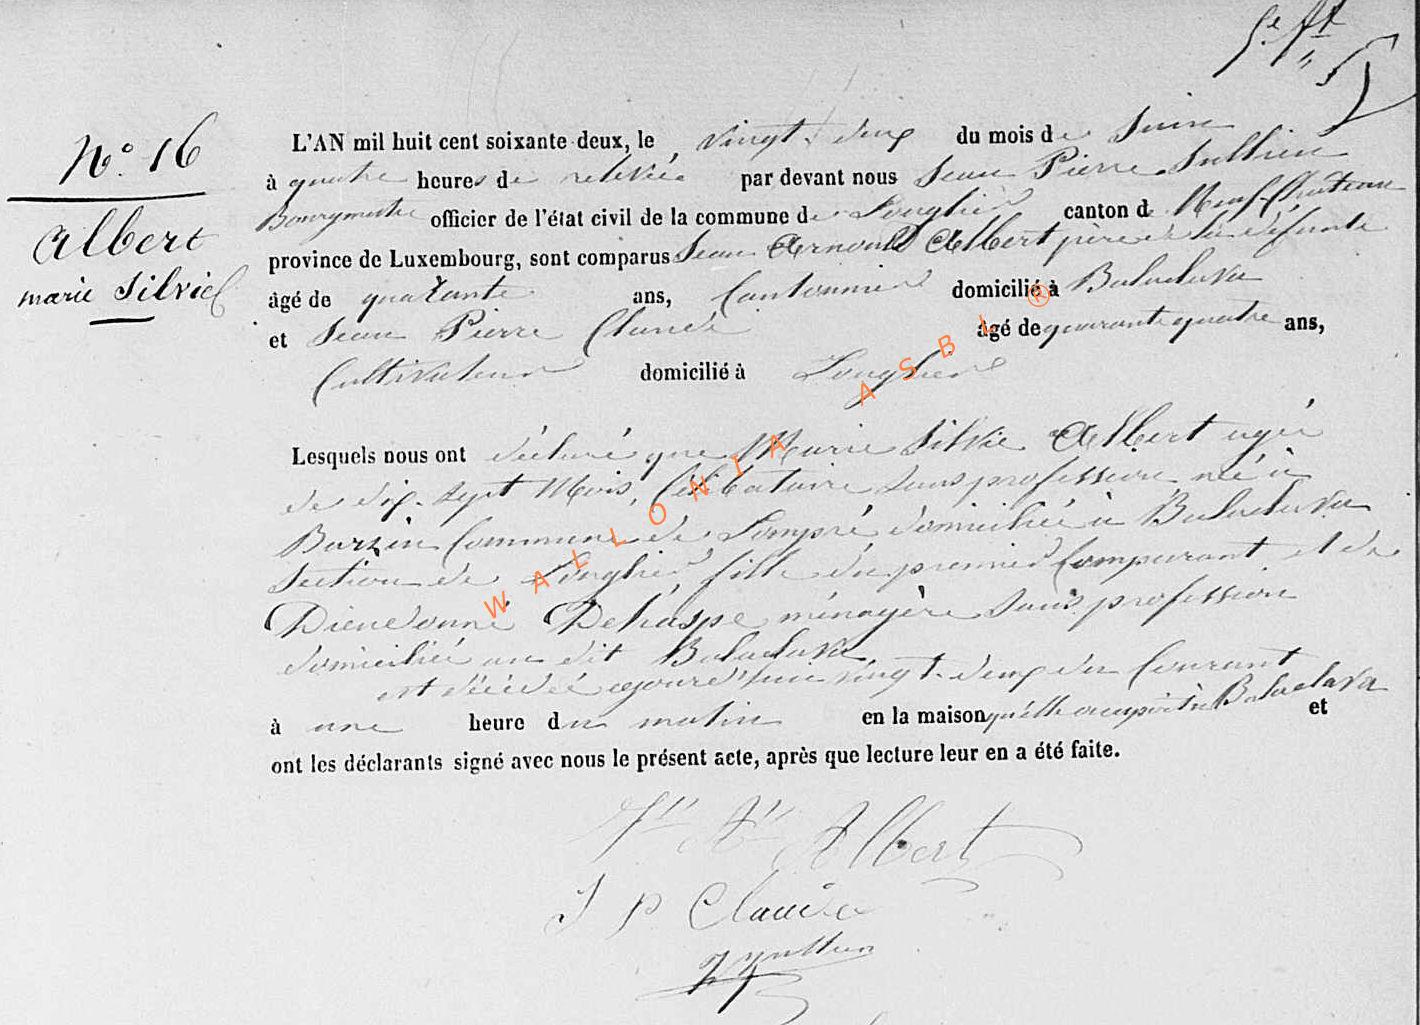 5e ft
N° 16
Albert
marie Silvie
L'AN mil huit cent soixante deux, le vingt-deux du mois de Juin
à quatre heures de relevée par devant nous Jean Pierre
Bourgmestre officier de l'état civil de la commune de Longlier canton de Neufchâteau
province de Luxembourg, sont comparus Jean Arnould Albert père de la défunte
âgé de quarante ans, Cantonnier domicilié à Balaclava
et Jean Pierre Claude âgé de quarante quatre ans,
Cultivateur domicilié à Longlier
Lesquels nous ont déclaré que Marie Silvie Albert agée
de dix-sept Mois, Célibataire sans profession née à
Barzin Commune de Lompré domiciliée à Balaclava
Section de Longlier, fille du premier Comparant et de
Dieudonné Dehaspe ménagère sans profession
domiciliée au dit Balaclava
est décédée aujourd'hui vingt-deux du Courant
à une heure du matin en la maison qu'elle occupait à Balaclava et
ont les déclarants signé avec nous le présent acte, après que lecture leur en a été faite.
Jn An Albert
J P Claude
WALLONIA ASBL ®